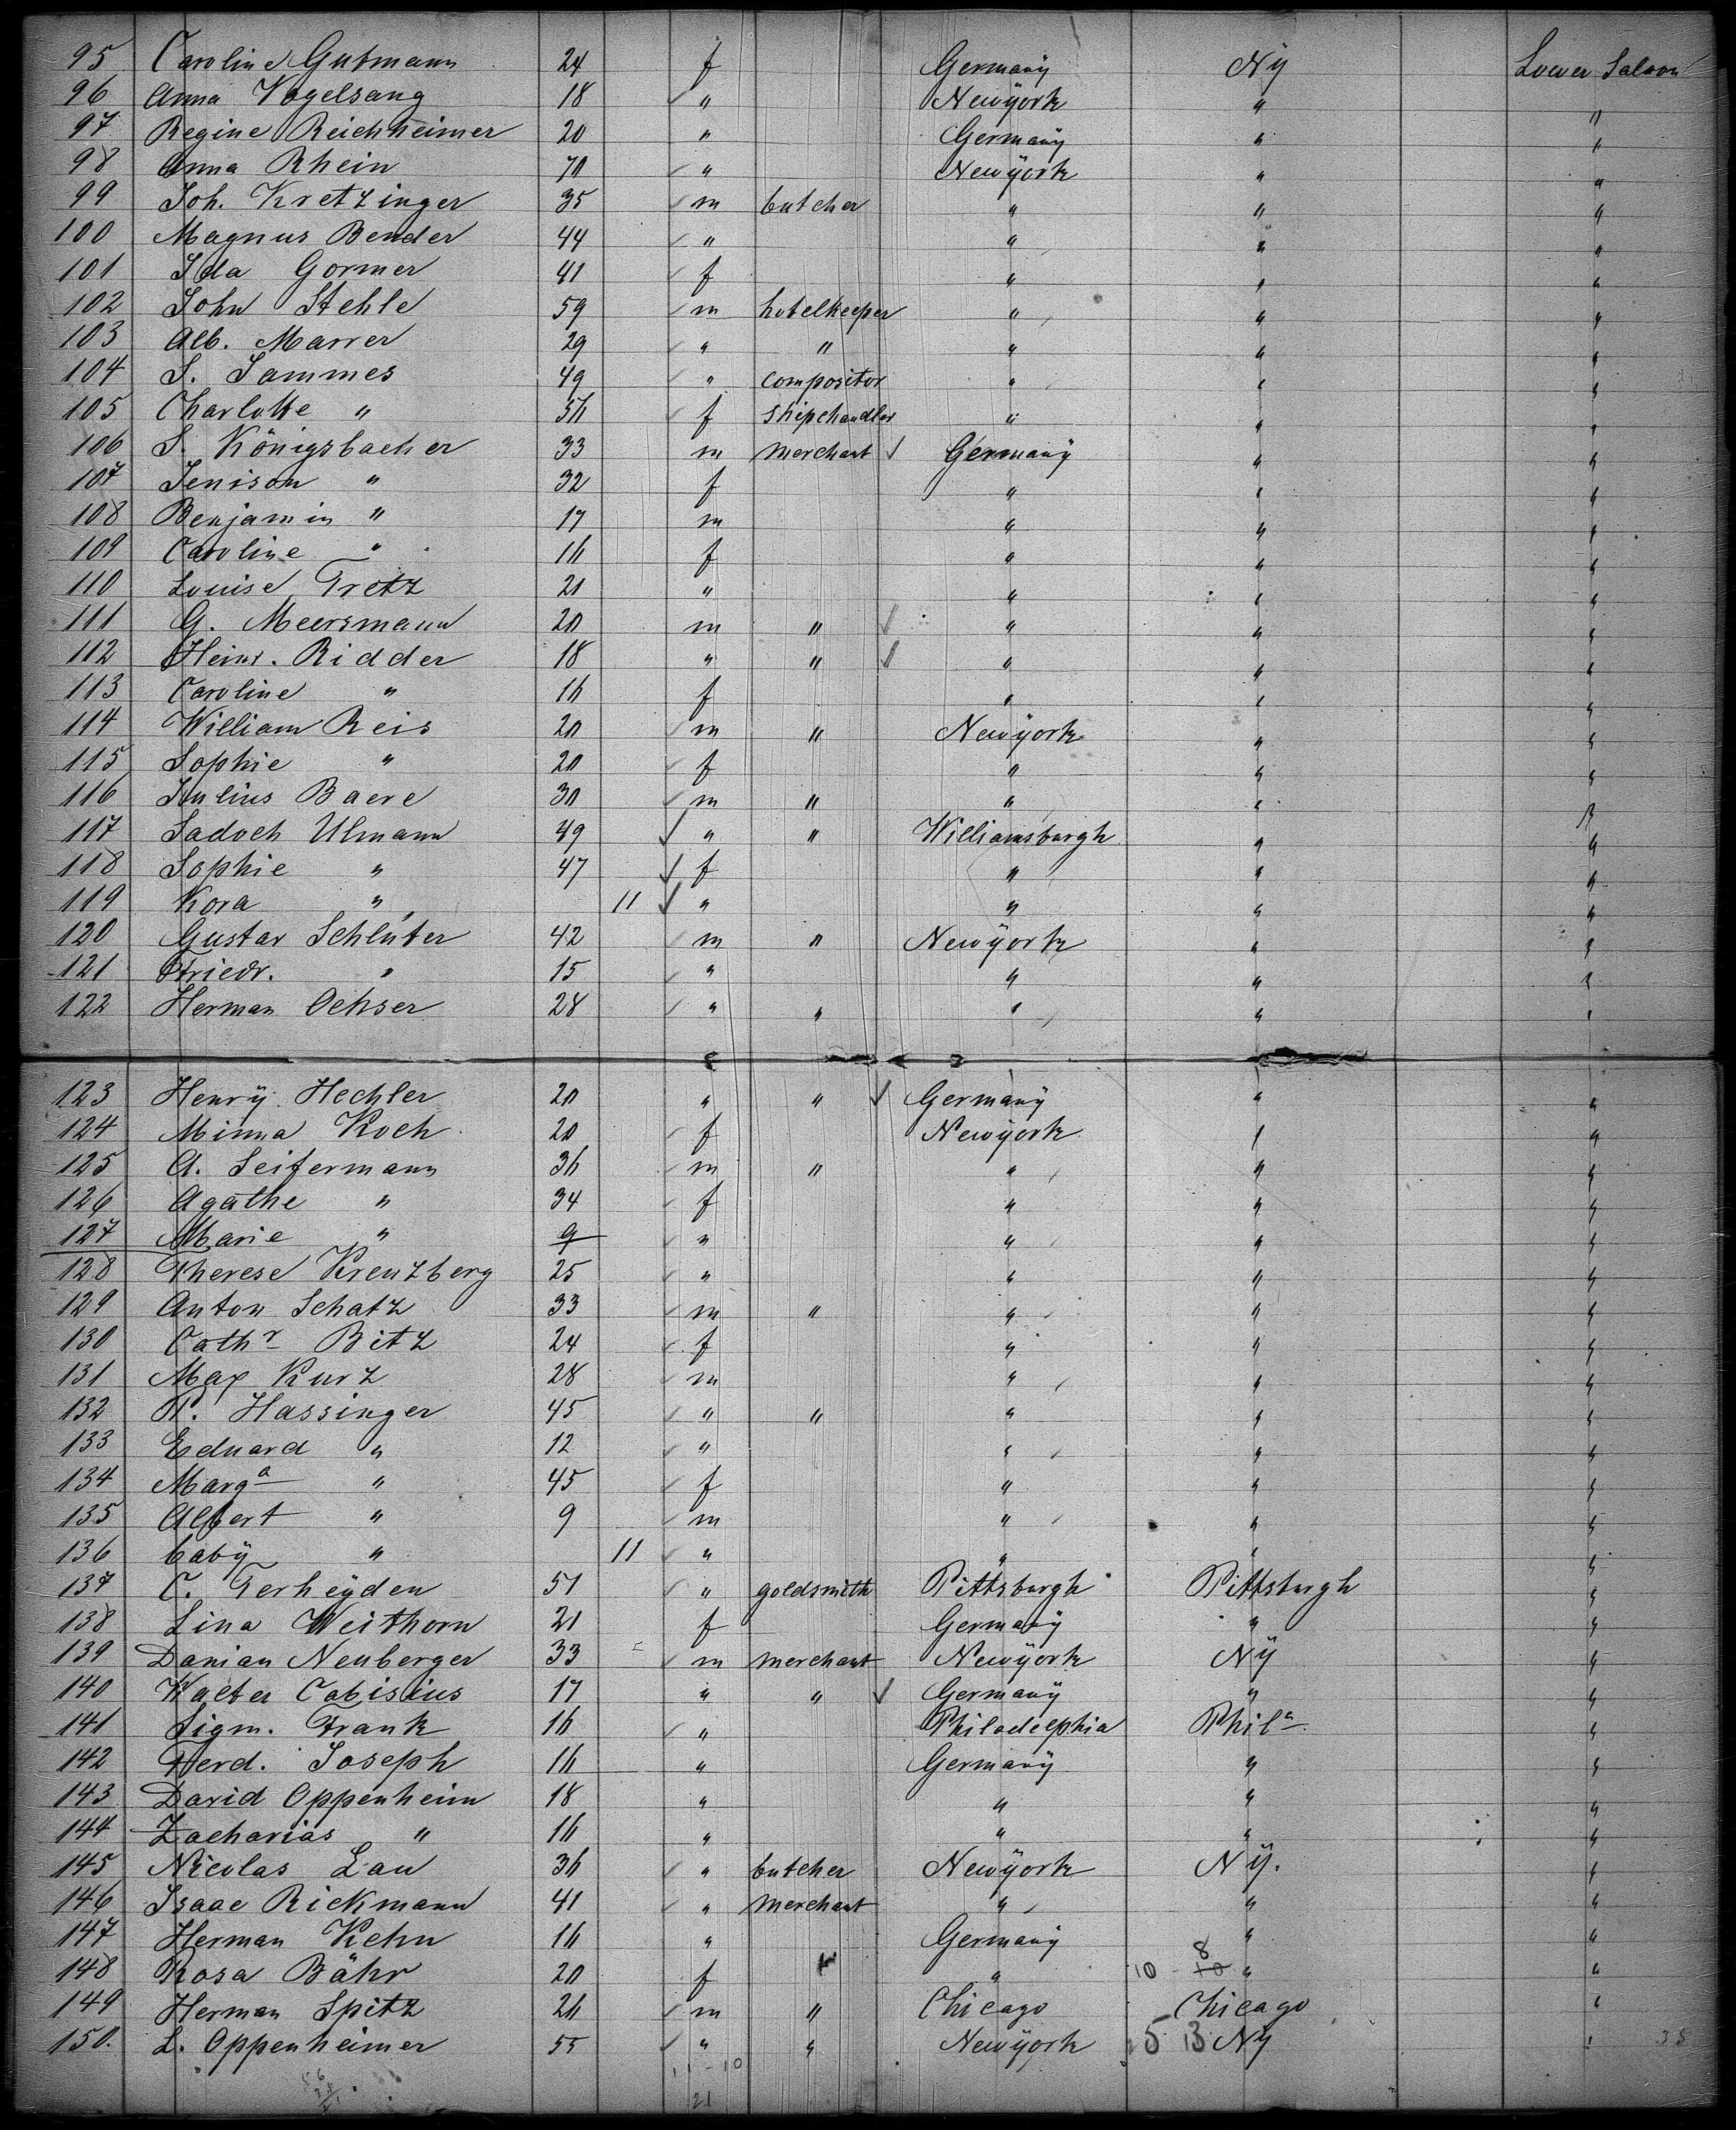 95 Caroline Gutmann 24 f Germany Ny Lower Saloon
96 Anna Vogelsang 18 " Newyork " "
97 Regine Reichheimer 20 " Germany " "
98 Anna Rhein 70 " Newyork " "
99 Joh. Kretzinger 35 m butcher " " "
100 Magnus Bender 44 " " " "
101 Ida Gormer 41 f " " "
102 John Stehle 59 m hotelkeeper " " "
103 Alb. Marrer 29 " " " " "
104 S. Sammes 49 " compositor " " "
105 Charlotte " 56 f shipchandler " " "
106 S. Königsbacher 33 m merchant ✓ Germany " "
107 Jenison " 32 f " " "
108 Benjamin " 17 m " " "
109 Caroline " 16 f " " "
110 Louise Tretz 21 " " " "
111 G. Meersmann 20 m " ✓ " " "
112 Heinr. Ridder 18 " " ✓ " " "
113 Caroline " 16 f " " "
114 William Reis 20 m " Newyork " "
115 Sophie " 20 f " " "
116 Julius Baere 30 m " " " "
117 Sadoch Ulmann 49 ✓ " " Williamsburgh " "
118 Sophie " 47 ✓ f " " "
119 Kora " 11 ✓ " " " "
120 Gustav Schlüter 42 m " Newyork " "
121 Friedr. " 15 " " " "
122 Herman Ochser 28 " " " " "
123 Henry Hechler 20 " " ✓ Germany " "
124 Minna Koch 20 f Newyork " "
125 A. Seifermann 36 m " " " "
126 Agathe " 34 f " " "
127 Marie " 9 " " " "
128 Therese Kreuzberg 25 " " " "
129 Anton Schatz 33 m " " " "
130 Cathr Bitz 24 f " " "
131 Max Kurz 28 m " " "
132 P. Hassinger 45 " " " " "
133 Eduard " 12 " " " "
134 Marga " 45 f " " "
135 Albert " 9 m " " "
136 baby " 11 " " " "
137 C. Terheyden 51 " goldsmith Pittsburgh Pittsburgh "
138 Lina Weithorn 21 f Germany " "
139 Damian Neuberger 33 m merchant Newyork Ny "
140 Walter Cabisius 17 " " ✓ Germany " "
141 Sigm. Frank 16 " Philadelphia Phila "
142 Ferd. Joseph 16 " Germany " "
143 David Oppenheim 18 " " " "
144 Zacharias " 16 " " " "
145 Nicolas Lau 36 " butcher Newyork Ny. "
146 Isaac Rickmann 41 " merchant " " "
147 Herman Kehn 16 " Germany " "
8
148 Rosa Bähr 20 f " 10 - 10 " "
149 Herman Spitz 26 m " Chicago Chicago "
150. L. Oppenheimer 55 " " Newyork 5 13 Ny " 38
11-10
21